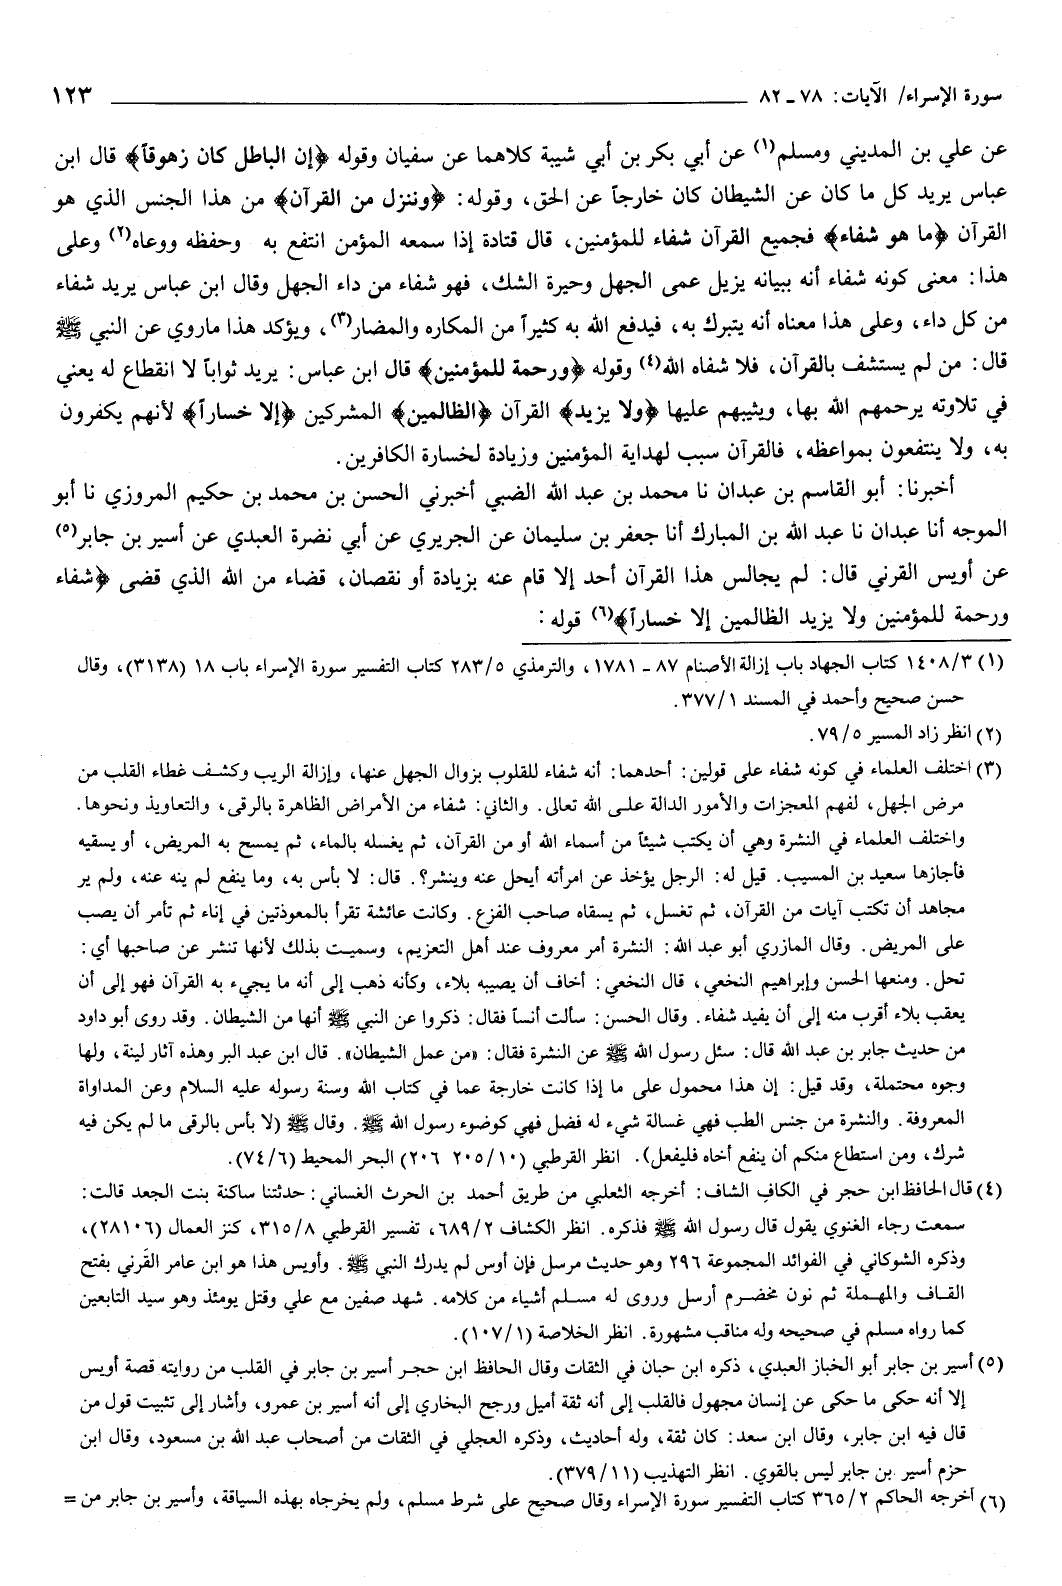 سورة الإسراء/ الآيات: ٧٨ ـ ٨٢ ١٢٣
عن علي بن المديني ومسلم(١) عن أبي بكر بن أبي شيبة كلاهما عن سفيان وقوله ﴿إن الباطل كان زهوقاً﴾ قال ابن
عباس يريد كل ما كان عن الشيطان كان خارجاً عن الحق، وقوله: ﴿وننزل من القرآن﴾ من هذا الجنس الذي هو
القرآن ﴿ما هو شفاء﴾ فجميع القرآن شفاء للمؤمنين، قال قتادة إذا سمعه المؤمن انتفع به وحفظه ووعاه(٢) وعلى
هذا: معنى كونه شفاء أنه ببيانه يزيل عمى الجهل وحيرة الشك، فهو شفاء من داء الجهل وقال ابن عباس يريد شفاء
من كل داء، وعلى هذا معناه أنه يتبرك به، فيدفع الله به كثيراً من المكاره والمضار(٣)، ويؤكد هذا ماروي عن النبي ﷺ
قال: من لم يستشف بالقرآن، فلا شفاه الله(٤) وقوله ﴿ورحمة للمؤمنين﴾ قال ابن عباس: يريد ثواباً لا انقطاع له يعني
في تلاوته يرحمهم الله بها، ويثيبهم عليها ﴿ولا يزيد﴾ القرآن ﴿الظالمين﴾ المشركين ﴿إلا خساراً﴾ لأنهم يكفرون
به، ولا ينتفعون بمواعظه، فالقرآن سبب لهداية المؤمنين وزيادة لخسارة الكافرين.
أخبرنا: أبو القاسم بن عبدان نا محمد بن عبد الله الضبي أخبرني الحسن بن محمد بن حكيم المروزي نا أبو
الموجه أنا عبدان نا عبد الله بن المبارك أنا جعفر بن سليمان عن الجريري عن أبي نضرة العبدي عن أسير بن جابر(٥)
عن أويس القرني قال: لم يجالس هذا القرآن أحد إلا قام عنه بزيادة أو نقصان، قضاء من الله الذي قضى ﴿شفاء
ورحمة للمؤمنين ولا يزيد الظالمين إلا خساراً﴾(٦) قوله:
(١) ١٤٠٨/٣ كتاب الجهاد باب إزالة الأصنام ٨٧ ـ ١٧٨١، والترمذي ٢٨٣/٥ كتاب التفسير سورة الإسراء باب ١٨ (٣١٣٨)، وقال
حسن صحيح وأحمد في المسند ٣٧٧/١.
(٢) انظر زاد المسير ٧٩/٥.
(٣) اختلف العلماء في كونه شفاء على قولين: أحدهما: أنه شفاء للقلوب بزوال الجهل عنها، وإزالة الريب وكشف غطاء القلب من
مرض الجهل، لفهم المعجزات والأمور الدالة على الله تعالى. والثاني: شفاء من الأمراض الظاهرة بالرقى، والتعاويذ ونحوها.
واختلف العلماء في النشرة وهي أن يكتب شيئاً من أسماء الله أو من القرآن، ثم يغسله بالماء، ثم يمسح به المريض، أو يسقيه
فأجازها سعيد بن المسيب. قيل له: الرجل يؤخذ عن امرأته أيحل عنه وينشر؟. قال: لا بأس به، وما ينفع لم ينه عنه، ولم ير
مجاهد أن تكتب آيات من القرآن، ثم تغسل، ثم يسقاه صاحب الفزع. وكانت عائشة تقرأ بالمعوذتين في إناء ثم تأمر أن يصب
على المريض. وقال المازري أبو عبد الله: النشرة أمر معروف عند أهل التعزيم، وسميت بذلك لأنها تنشر عن صاحبها أي:
تحل. ومنعها الحسن وإبراهيم النخعي، قال النخعي: أخاف أن يصيبه بلاء، وكأنه ذهب إلى أنه ما يجيء به القرآن فهو إلى أن
يعقب بلاء أقرب منه إلى أن يفيد شفاء. وقال الحسن: سألت أنساً فقال: ذكروا عن النبي ﷺ أنها من الشيطان. وقد روى أبو داود
من حديث جابر بن عبد الله قال: سئل رسول الله ﷺ عن النشرة فقال: «من عمل الشيطان». قال ابن عبد البر وهذه آثار لينة، ولها
وجوه محتملة، وقد قيل: إن هذا محمول على ما إذا كانت خارجة عما في كتاب الله وسنة رسوله عليه السلام وعن المداواة
المعروفة. والنشرة من جنس الطب فهي غسالة شيء له فضل فهي كوضوء رسول الله ﷺ. وقال ﷺ (لا بأس بالرقى ما لم يكن فيه
شرك، ومن استطاع منكم أن ينفع أخاه فليفعل). انظر القرطبي (٢٠٥/١٠ ٢٠٦) البحر المحيط (٧٤/٦).
(٤) قال الحافظ ابن حجر في الكاف الشاف: أخرجه الثعلبي من طريق أحمد بن الحرث الغساني: حدثتنا ساكنة بنت الجعد قالت:
سمعت رجاء الغنوي يقول قال رسول الله ﷺ فذكره. انظر الكشاف ٦٨٩/٢، تفسير القرطبي ٣١٥/٨، كنز العمال (٢٨١٠٦)،
وذكره الشوكاني في الفوائد المجموعة ٢٩٦ وهو حديث مرسل فإن أوس لم يدرك النبي ﷺ. وأويس هذا هو ابن عامر القَرني بفتح
القاف والمهملة ثم نون مخضرم أرسل وروى له مسلم أشياء من كلامه. شهد صفين مع علي وقتل يومئذ وهو سيد التابعين
كما رواه مسلم في صحيحه وله مناقب مشهورة. انظر الخلاصة (١٠٧/١).
(٥) أسير بن جابر أبو الخباز العبدي، ذكره ابن حبان في الثقات وقال الحافظ ابن حجر أسير بن جابر في القلب من روايته قصة أويس
إلا أنه حكى ما حكى عن إنسان مجهول فالقلب إلى أنه ثقة أميل ورجح البخاري إلى أنه أسير بن عمرو، وأشار إلى تثبيت قول من
قال فيه ابن جابر، وقال ابن سعد: كان ثقة، وله أحاديث، وذكره العجلي في الثقات من أصحاب عبد الله بن مسعود، وقال ابن
حزم أسير بن جابر ليس بالقوي. انظر التهذيب (٣٧٩/١١).
(٦) أخرجه الحاكم ٣٦٥/٢ كتاب التفسير سورة الإسراء وقال صحيح على شرط مسلم، ولم يخرجاه بهذه السياقة، وأسير بن جابر من =